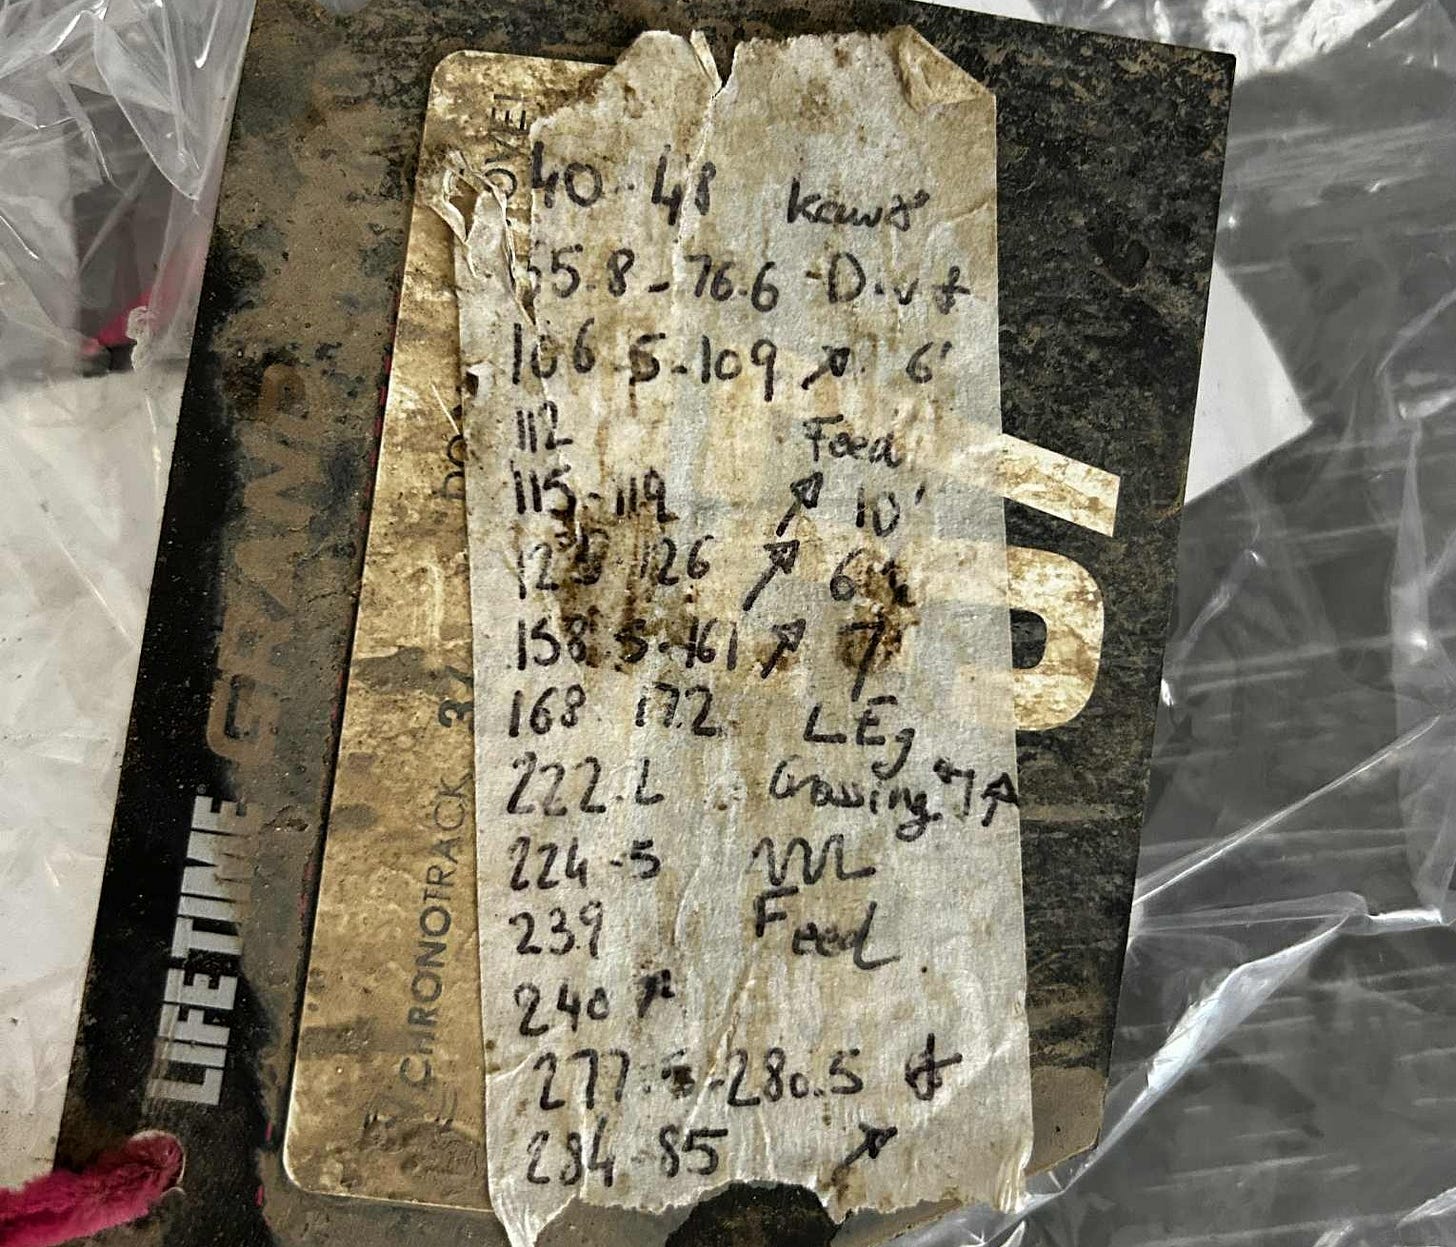 40-48 kaw8
65.8-76.6 -Div
106.5-109 ↗ 6'
112 Feed
115-119 ↗ 10'
126 ↗
158.5-161 ↗ 7
168 172 LEg
222.2 Crossing
224-5
239 Feed
240 ↗
277.5-280.5
284-85 ↗
CHRONOTRACK
LIFETIME
GRAND